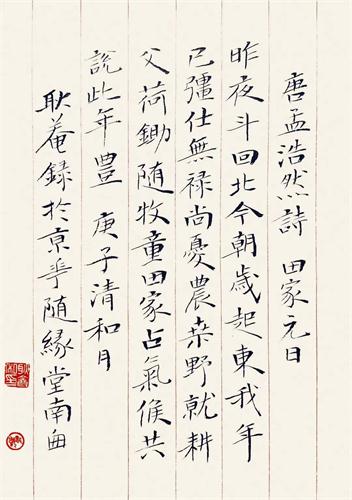 唐孟浩然詩 田家元日
昨夜斗回北今朝歲起東我年
已彊仕無禄尚憂農桒野就耕
父荷鋤随牧童田家占氣候共
說此年豐 庚子清和月
耿菴録於京華随緣堂南